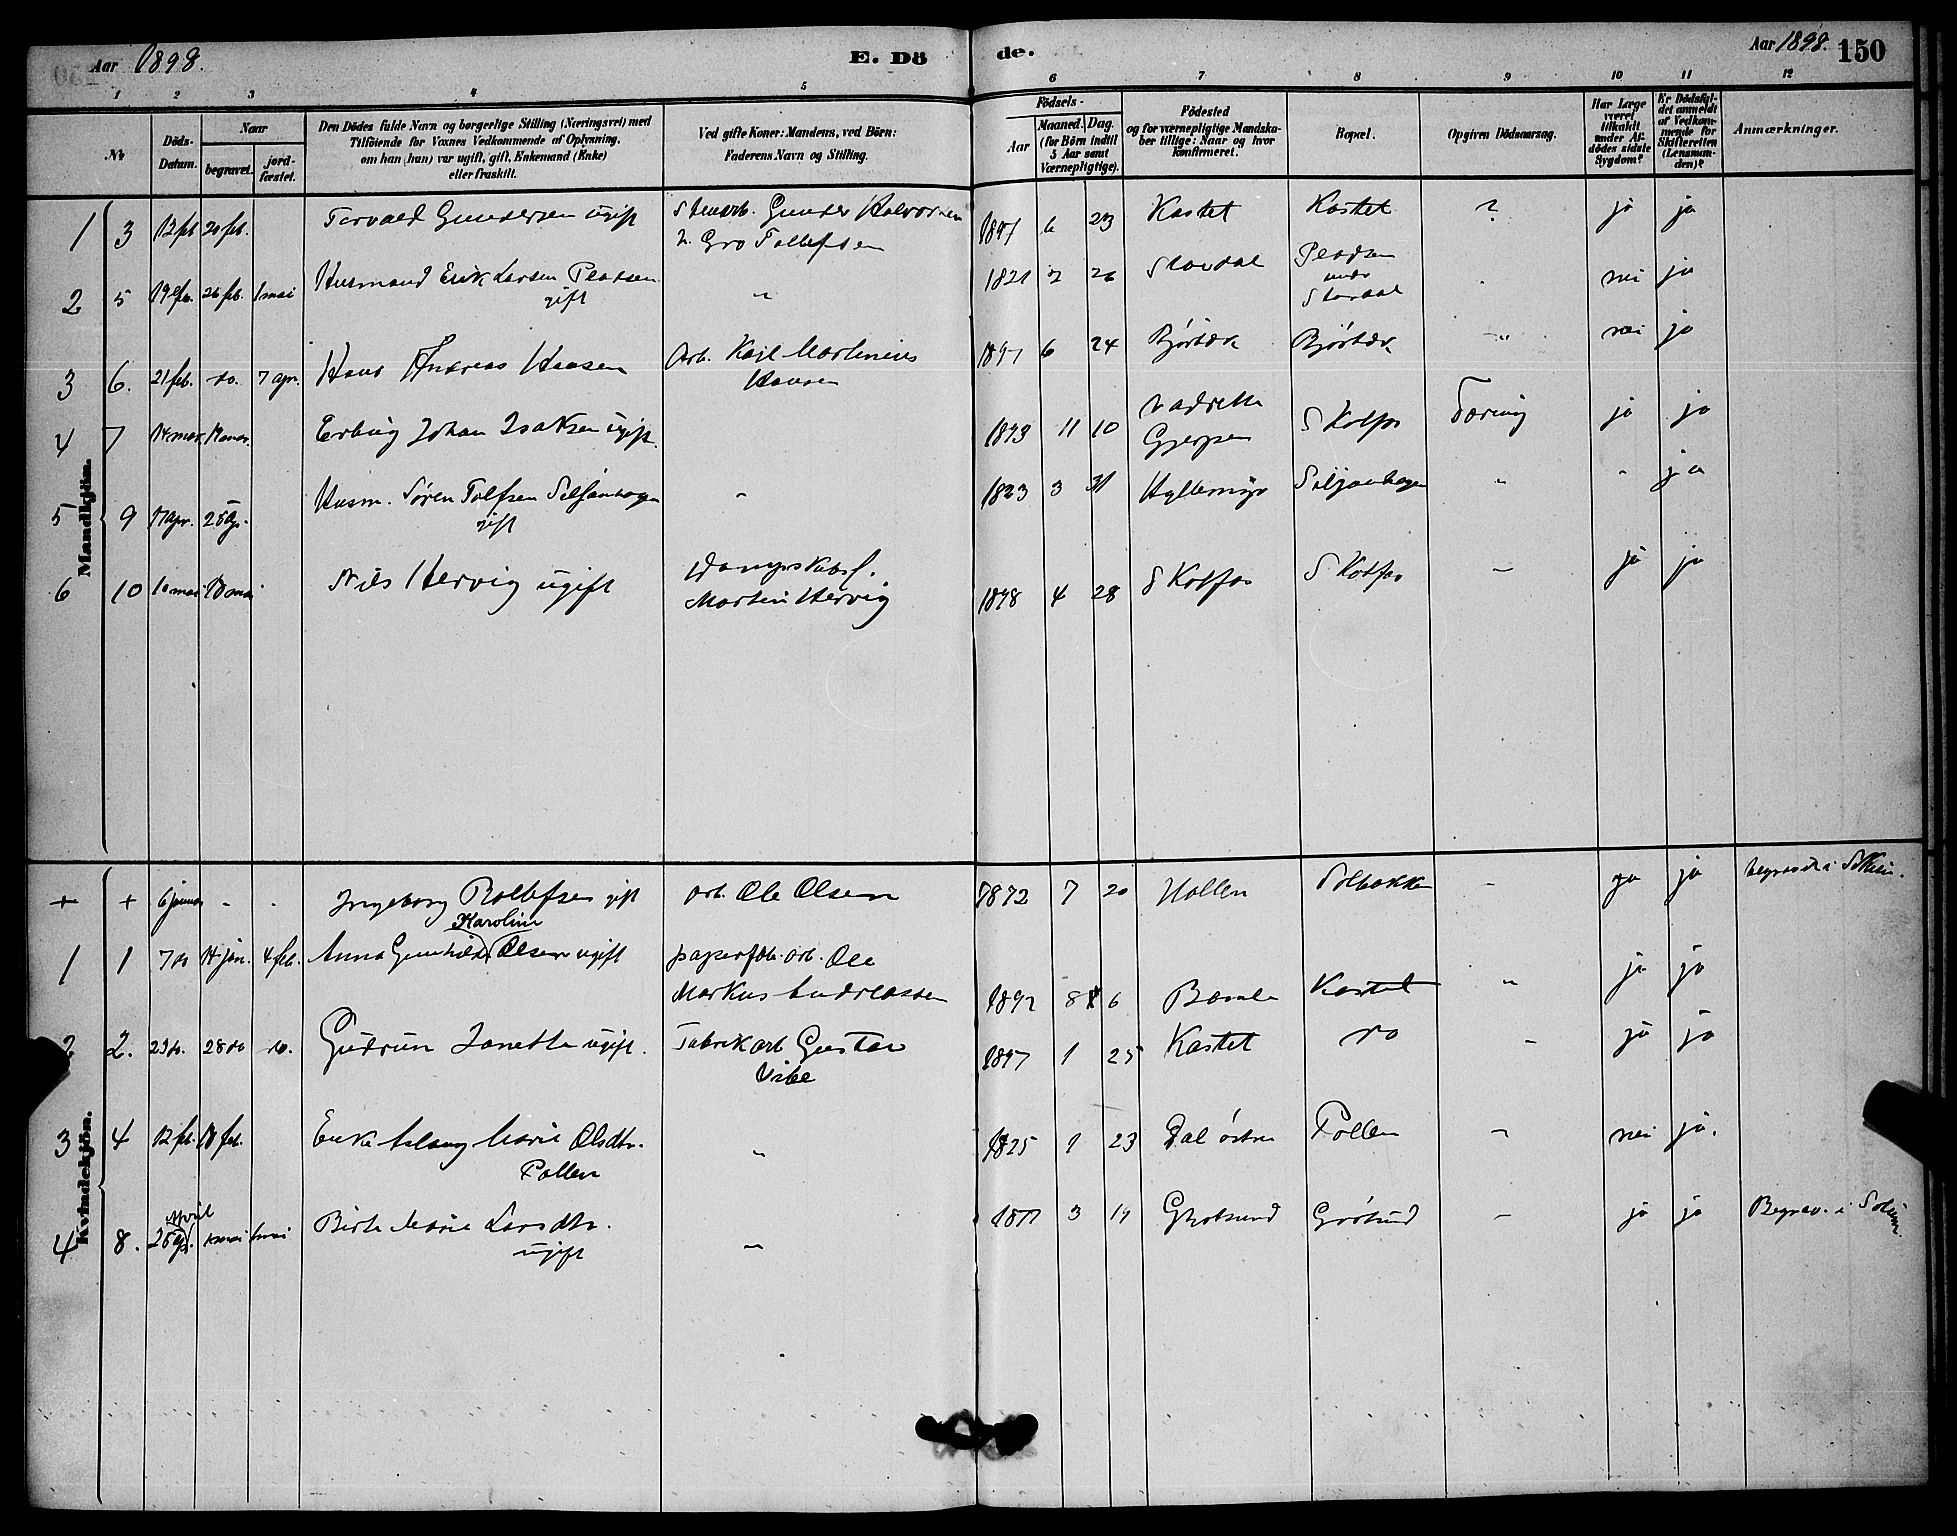 Aar 1898. E. Dö de. Aar 1898. 150
1 2 3 4 5 6 7 8 9 10 11 12
No.
Döds-
Datum.
Naar
begravet.
jord-
fæstet.
Den Dödes fulde Navn og borgerlige Stilling (Næringsvei) med
Tilföiende for Voxnes Vedkommende af Oplysning,
om han (hun) var ugift, gift, Enkemand (Enke)
eller fraskilt.
Ved gifte Koner: Mandens, ved Börn:
Faderens Navn og Stilling.
Födsels-
Aar
Maaned. Dag.
(for Börn indtil
5 Aar samt
Værnepligtige).
Födested
og for værnepligtige Mandska-
ber tillige: Naar og hvor
konfirmeret.
Bopæl.
Opgiven Dödsaarsag.
Har Læge
været
tilkaldt
under Af-
dödes sidste
Sygdom?
Er Dödsfal-
det anmeldt
af Vedkom-
mende for
Skifteretten
(Lensman-
den)?
Anmærkninger.
Mandkjön.
1 3 12 feb 20 feb. Torvald Gundersen ugift Gunder Halvorsen
Gro Tollefsen
1897 6 23 Kastet Kastet ? ja ja
2 5 19 feb. 26 feb. 1 mai Husmand Erik Larsen Pladsen
gift
"
1821 2 26 Stordal Pladsen
under
Stordal
nei ja
3 6. 21 feb. do. 7 apr. Hans Andreas Hansen Arb. Karl Martinius
Hansen
1897 6 24 Bjørbæk Bjørbæk " nei ja
4 7 14 mar. 19 mar. Erling Johan Isaksen ugift.
1893 11 10
Gjerpen
Skotfos Tæring ja ja
5 9 17 apr. 25 ap. Husm. Søren Tolfsen Siljanhagen
gift
"
1823 3 31 Hyllemyr Siljanhagen " " ja
6 10 10 mai 18 mai Nils Hervig ugift
Martin Hervig
1898 4 28 Skotfos Skotfos - ja ja
Kvindekjön.
+ + 6 januar - - Ingeborg Rollefsen gift arb. Ole Olsen 1872 7 20 Hollen Solbakken - ja ja begravet i Skien.
Karoline
1 1 7 do 14 jan. 4 feb. Anna Gunhilda Olsen ugift papirfab. arb. Ole
Markus Andreassen
1892 8 6 Bamle Kastet " ja ja
2 2. 23 do. 28 do do. Gudrun Janette ugift. Fabrikarb Gustav
Vibe
1897 1 25 Kastet do - ja ja
3 4 12 feb. 18 feb. Enke Aslaug Marie Olsdtr.
Pollen
"
1825 1 23 Dal østre Pollen " nei ja.
april
4 8. 25 1 mai Birte Marie Larsdtr.
ugift
"
3 19 Grøtsund - ja ja Begrav. i Solum